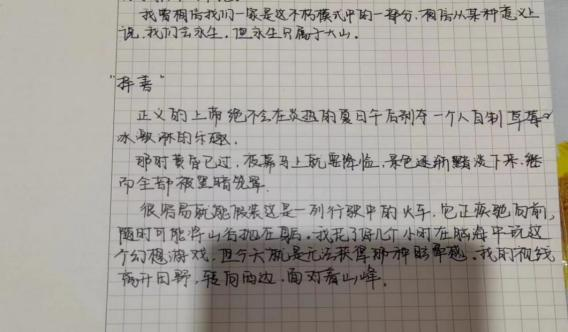 我曾相信我们一家是这不朽模式中的一部分,相信从某种意义上
说,我们会永生。但永生只属于大山。
"择善"
正义的上帝绝不会在炎热的夏日午后剥夺一个人自制草莓
冰激淋的乐趣。
那时黄昏已过,夜幕马上就要降临,景色逐渐黯淡下来,继
而全部被黑暗笼罩。
很容易就能假装这是一列行驶中的火车,它正疾驰向前,
随时可能将山谷抛在身后。我花了好几个小时在脑海中玩这
个幻想游戏,但今天就是无法获得那种眩晕感。我的视线
离开田野,转向西边,面对着山峰。